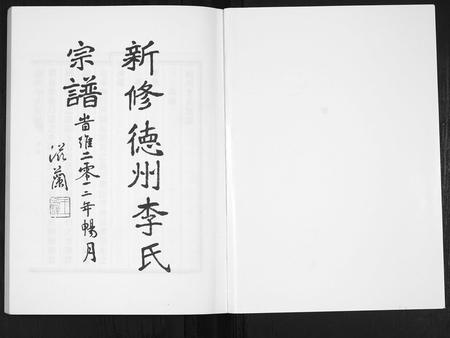 新修德州李氏
宗譜
旹維二零一二年暢月
滋蘭